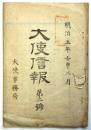 明治五年壬申八月
大使信報
第二號
大使事務局